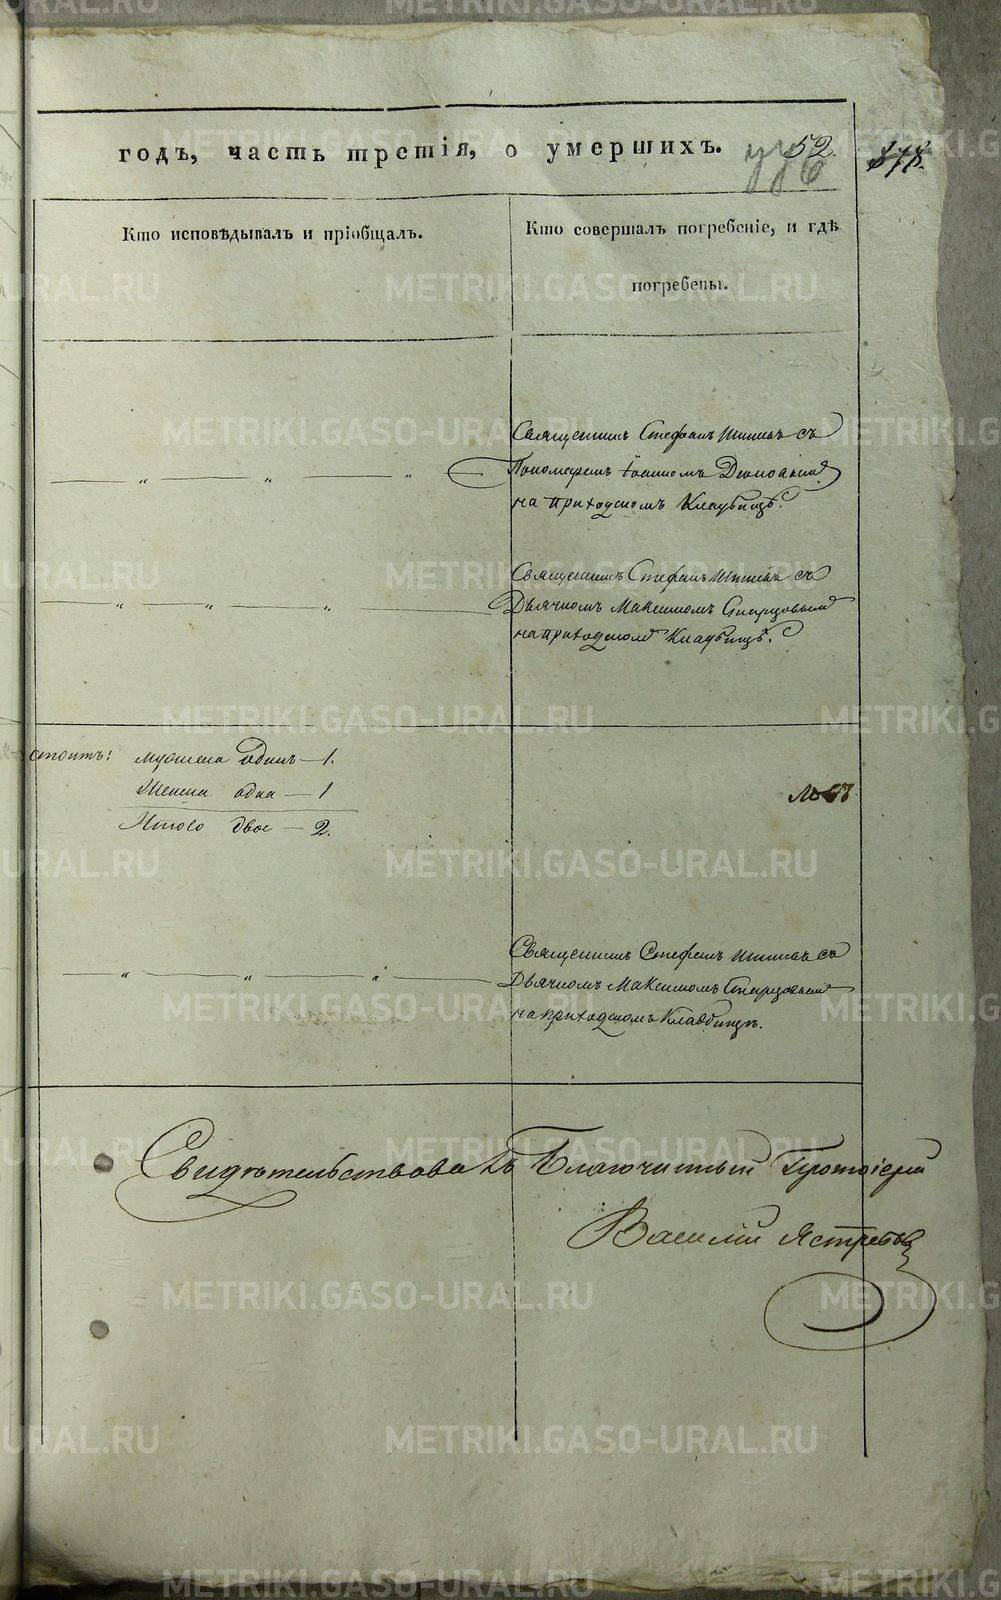 годъ, часть третія, о умершихъ.
52.
Кто исповѣдывалъ и пріобщалъ.
Кто совершалъ погребеніе, и гдѣ
погребены.
Священникъ Стефанъ съ
Пономаремъ Іоанномъ
на приходскомъ Кладбищѣ.
Священникъ Стефанъ съ
Дьячкомъ Максимомъ Старцовымъ
на приходскомъ Кладбищѣ.
стоитъ: мужеска одинъ — 1.
Женска одна — 1
Итого двое — 2.
Священникъ Стефанъ съ
Дьячкомъ Максимомъ Старцовымъ
на приходскомъ Кладбищѣ.
Свидѣтельствовалъ Благочинный Протоіерей
Василій Ястребовъ
METRIKI.GASO-URAL.RU